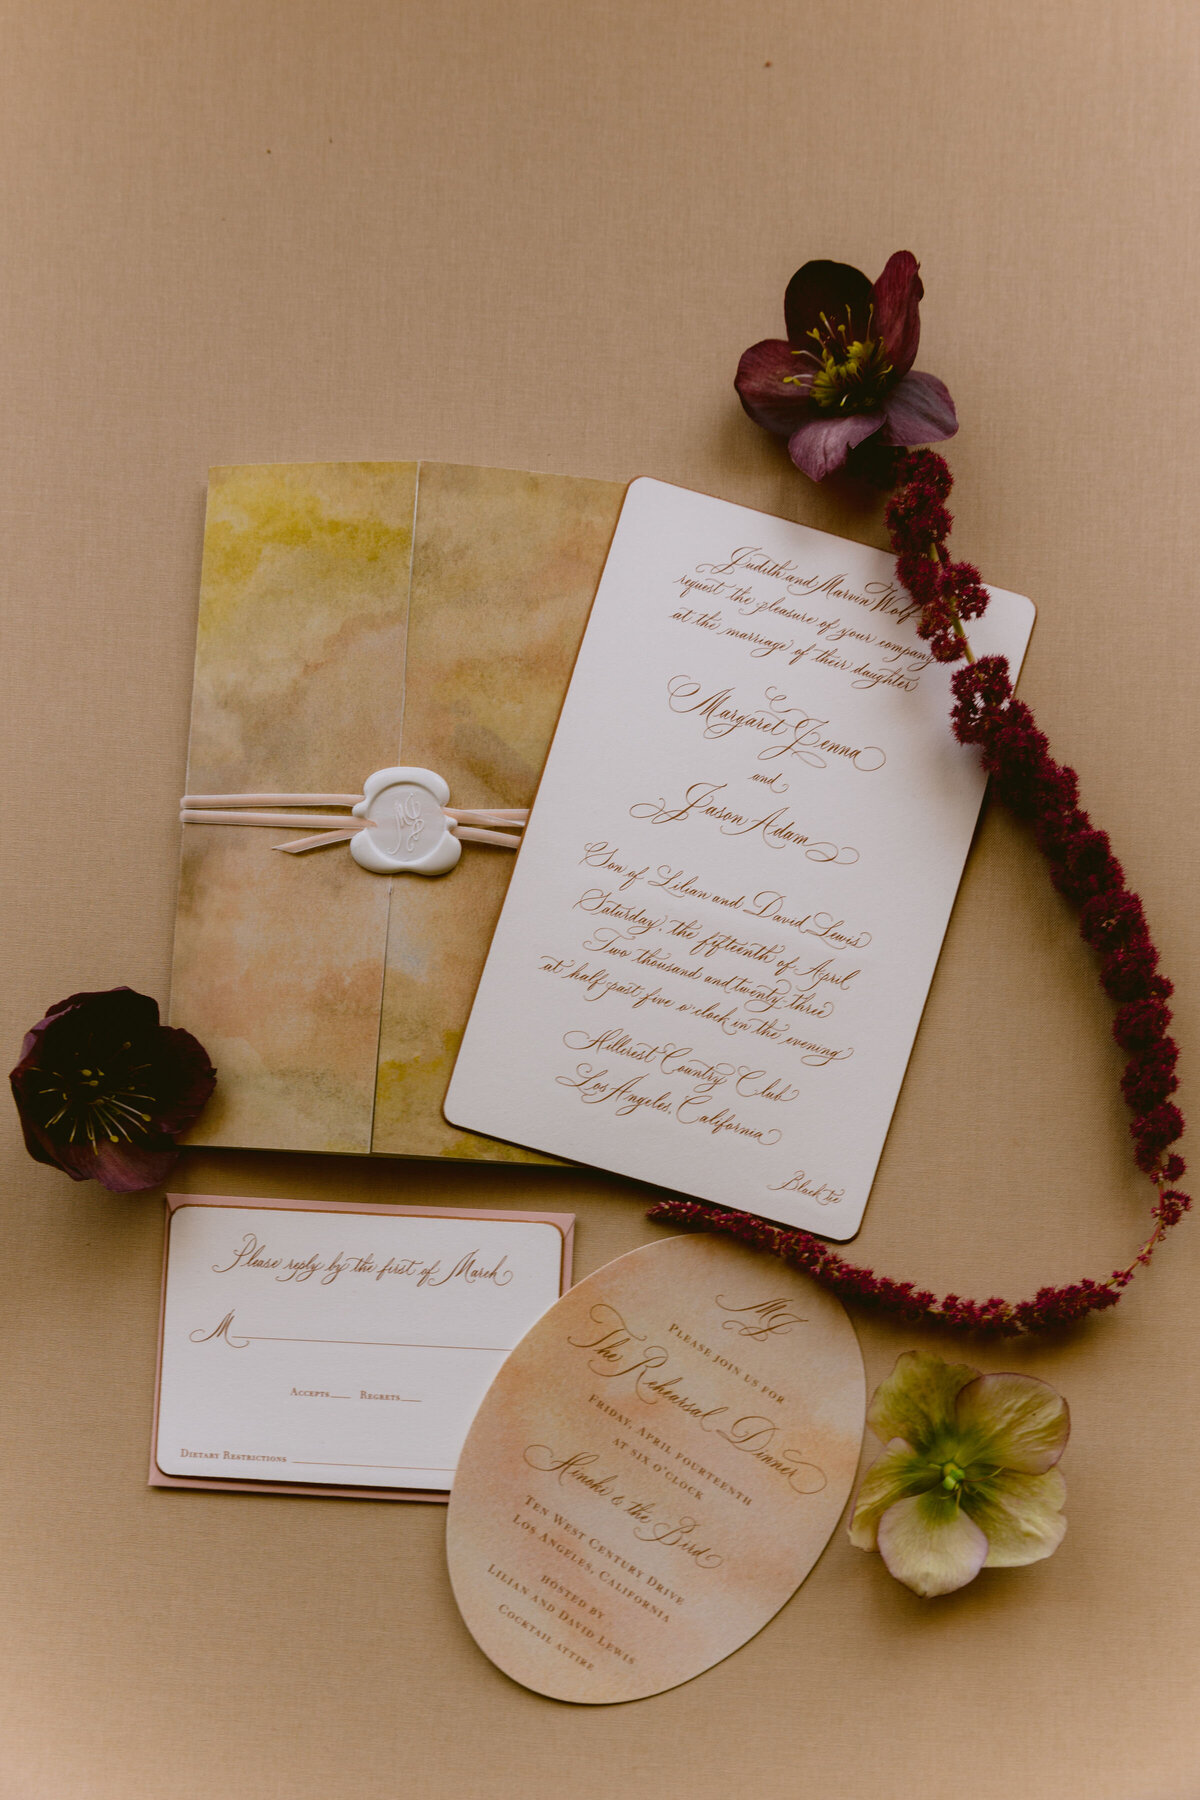 Judith and Marvin Wolf
request the pleasure of your company
at the marriage of their daughter
Margaret Jenna
and
Jason Adam
Son of Lilian and David Lewis
Saturday, the fifteenth of April
Two thousand and twenty-three
at half past five o'clock in the evening
Hillcrest Country Club
Los Angeles, California
Black tie
MJ
Please reply by the first of March
M
Accepts Regrets
Dietary Restrictions
MJ
Please join us for
The Rehearsal Dinner
Friday, April fourteenth
at six o'clock
Hinoki & the Bird
Ten West Century Drive
Los Angeles, California
hosted by
Lilian and David Lewis
Cocktail attire